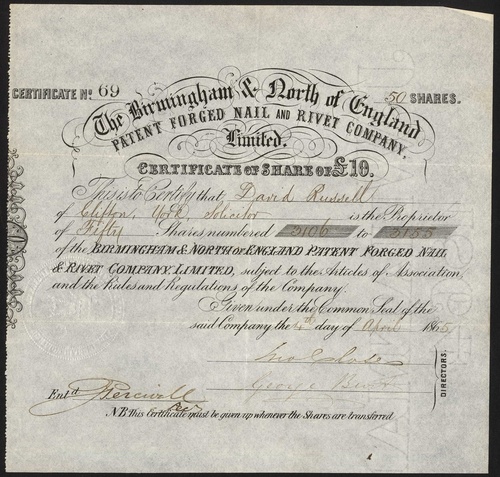 CERTIFICATE No. 69
50 SHARES.
The Birmingham & North of England
PATENT FORGED NAIL AND RIVET COMPANY,
Limited.
CERTIFICATE OF SHARE OF £10.
This is to Certify that, David Russell
of Clifton, York, Solicitor is the Proprietor
of Fifty Shares numbered 3106 to 3155
of the BIRMINGHAM & NORTH OF ENGLAND PATENT FORGED NAIL
& RIVET COMPANY, LIMITED, subject to the Articles of Association
and the Rules and Regulations of the Company.
Given under the Common Seal of the
said Company the 4th day of April 1865
George
DIRECTORS.
Entd. J Percivall
Sec
NB This Certificate must be given up whenever the Shares are transferred.